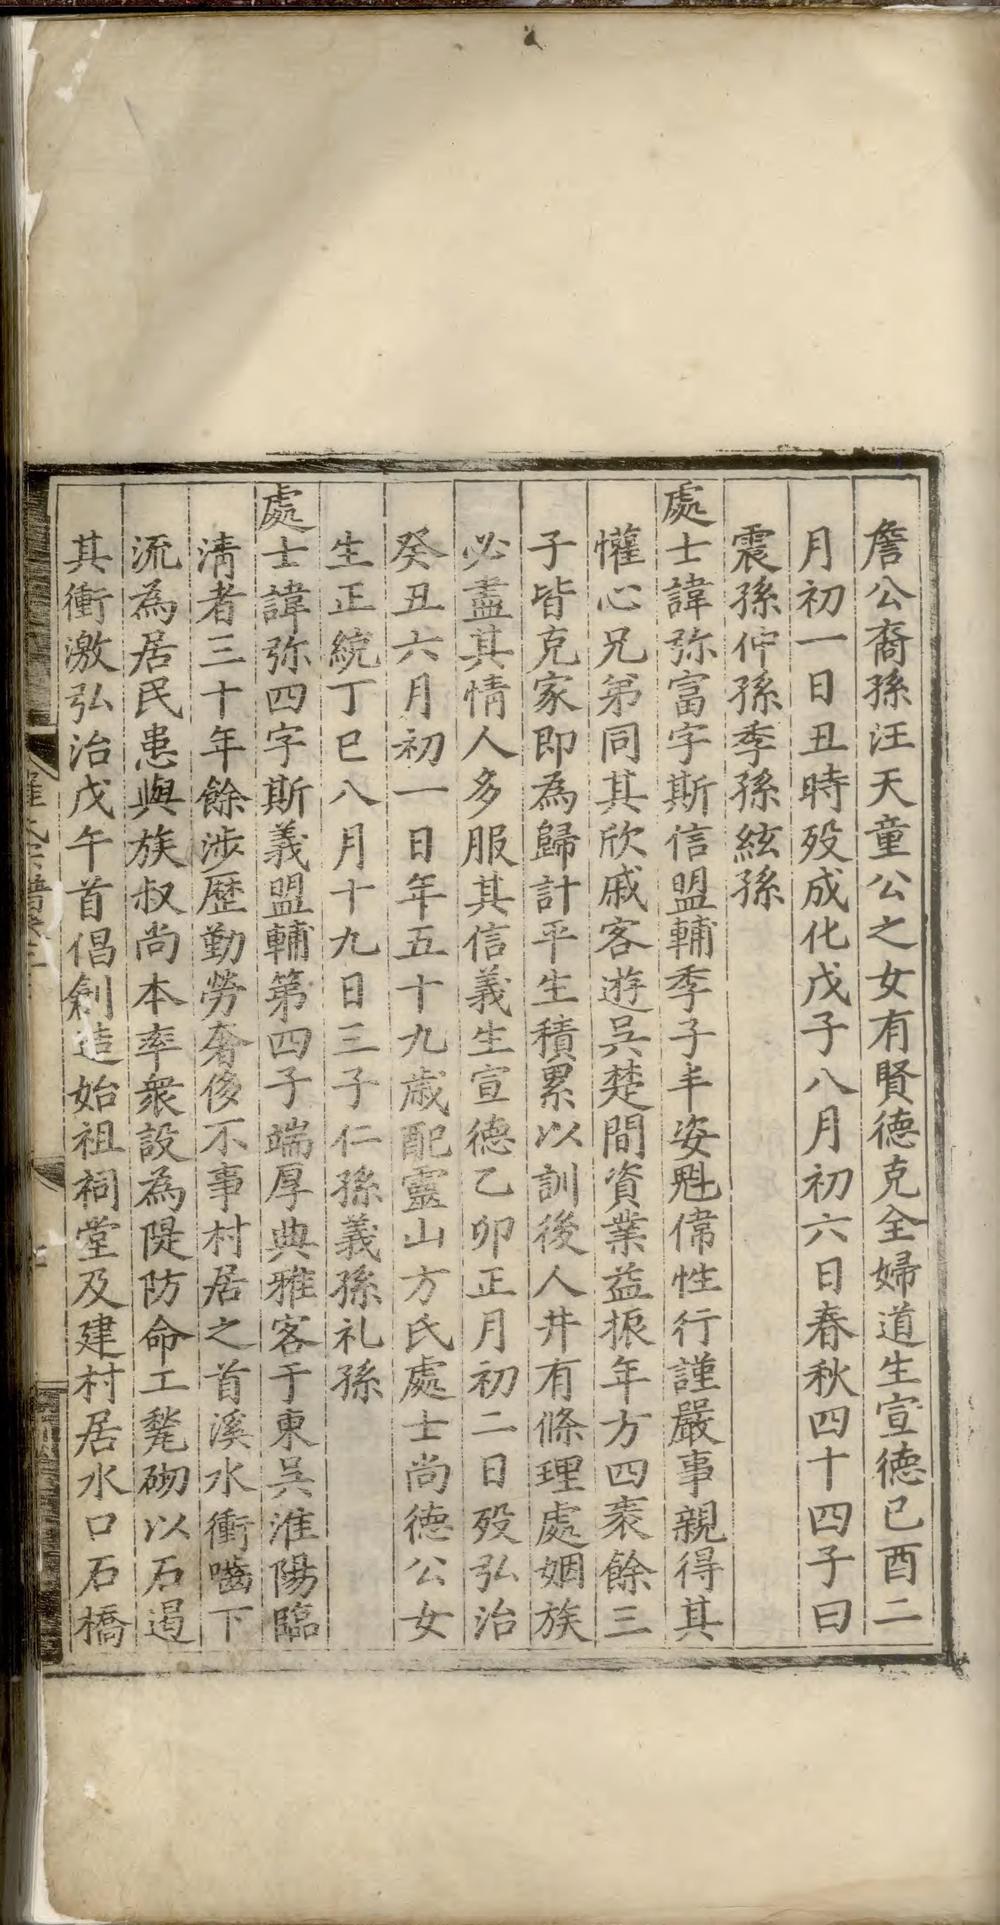 詹公裔孫汪天童公之女有賢德克全婦道生宣德己酉二
月初一日丑時殁成化戊子八月初六日春秋四十四子曰
震孫仲孫季孫絃孫
處士諱弥富字斯信盟輔季子丰姿魁偉性行謹嚴事親得其
懽心兄弟同其欣戚客遊吳楚間資業益振年方四袠餘三
子皆克家即為歸計平生積累以訓後人井有條理處姻族
必盡其情人多服其信義生宣德乙卯正月初二日殁弘治
癸丑六月初一日年五十九歲配靈山方氏處士尚德公女
生正統丁巳八月十九日三子仁孫義孫礼孫
處士諱弥四字斯義盟輔第四子端厚典雅客于東吳淮陽臨
清者三十年餘涉歷勤勞奢侈不事村居之首溪水衝嚙下
流為居民患與族叔尚本率衆設為隄防命工甃砌以石遏
其衝激弘治戊午首倡創造始祖祠堂及建村居水口石橋